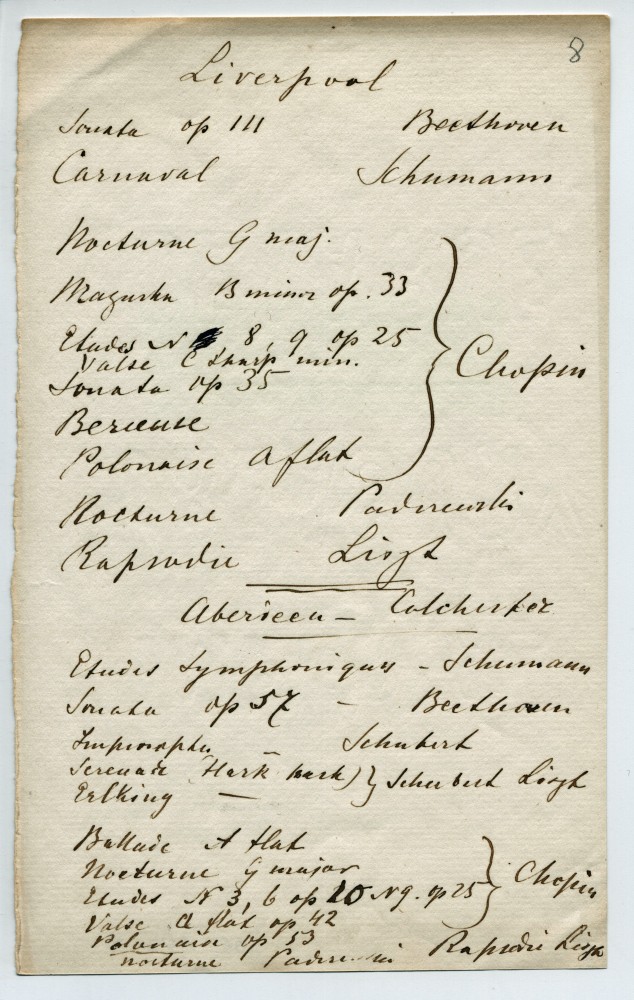 8
Liverpool
Sonata op 111 Beethoven
Carnaval Schumann
Nocturne G maj.
Mazurka B minor op. 33
Etudes N 8, 9 op 25
Valse C sharp min.
Sonata op 35
Chopin
Berceuse
Polonaise A flat
Nocturne Paderewski
Rapsodie Liszt
Aberdeen – Colchester
Etudes Symphoniques – Schumann
Sonata op 57 – Beethoven
Impromptu – Schubert
Serenade (Hark hark) Schubert Liszt
Erlking –
Ballade A flat
Nocturne G major
Chopin
Etudes N 3, 6 op 10 N 9. op 25
Valse A flat op 42
Polonaise op 53
nocturne Paderewski Rapsodie Liszt